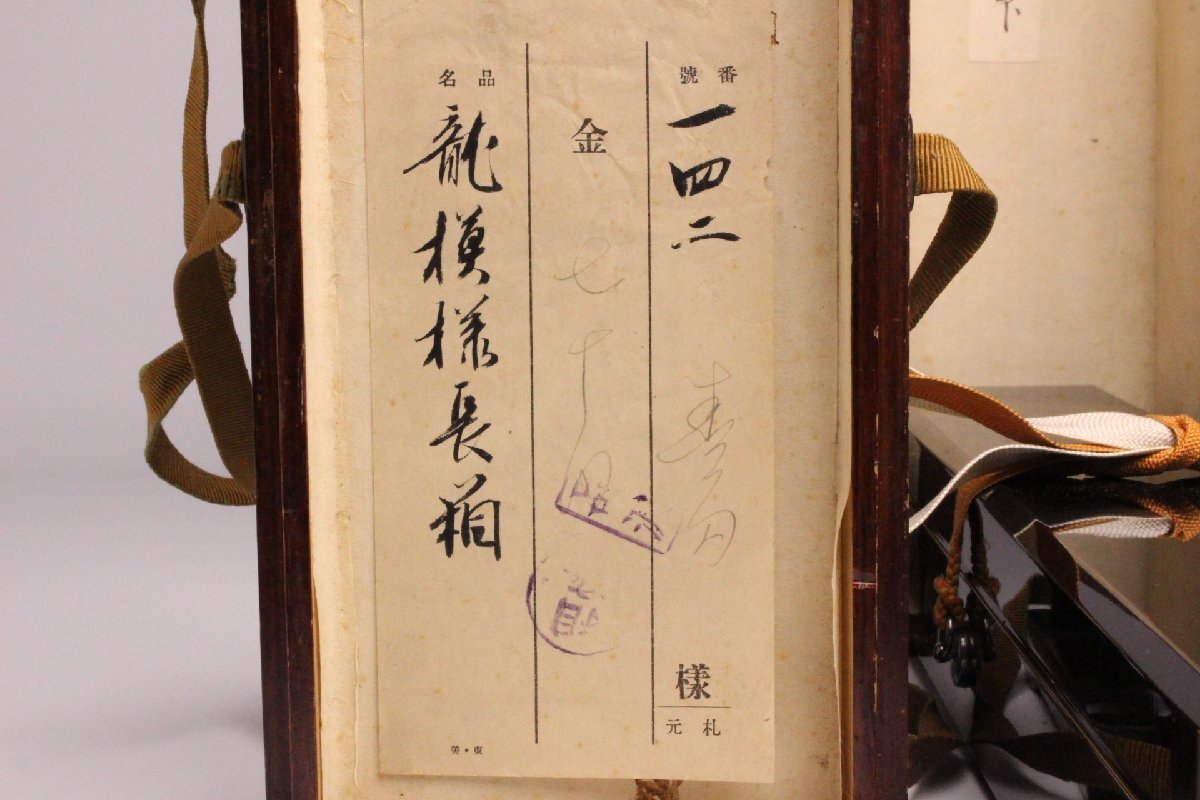 番號
一四二
樣
札元
金
七十円
品名
龍模様長箱
東・美
下